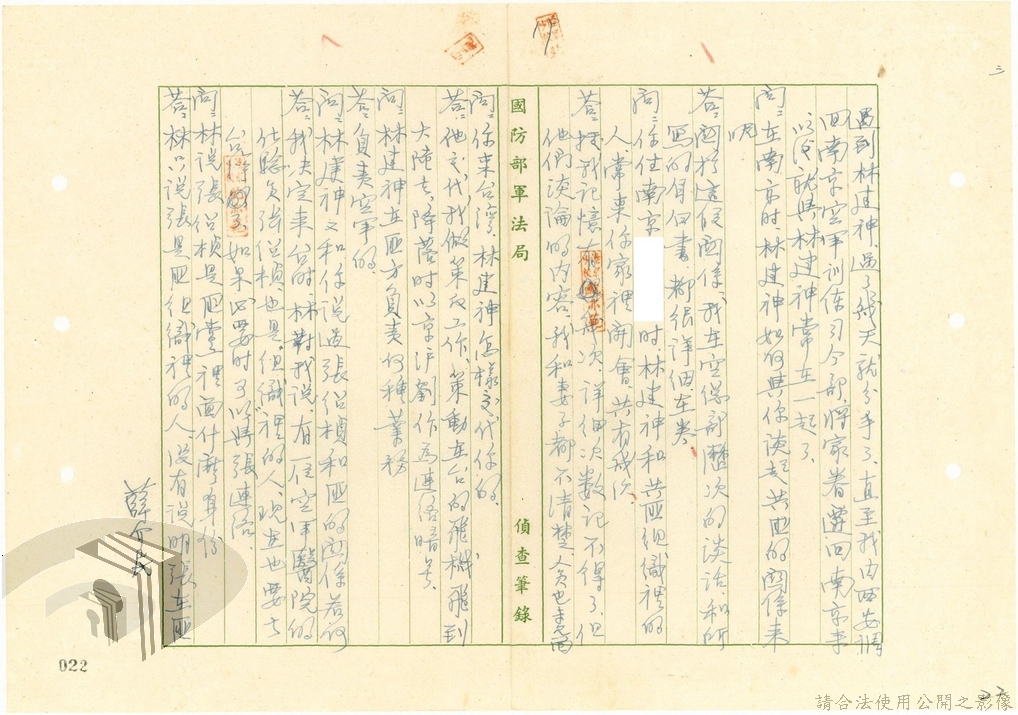 三
遇到林建神、過了幾天就分手了、直至我由西安調
回南京空軍訓練司令部、將家眷遷回南京来
以後就與林建神常在一起了、
問：在南京時、林建神如何與你談起共匪的關係来
呢
答：關於這個關係、我在空總部歷次的談話、和所
寫的自白書、都很詳細、在卷、
問：你住南京 時、林建神和共匪組織裡的
人常来你家裡開會、共有幾次、
答：據我記憶有 次、詳細次數記不得了、但
他們談論的內容、我和妻子都不清楚、人員也
國防部軍法局
偵查筆錄
問：你来台灣、林建神怎樣交代你的、
答：他交代、我做策反工作、策動在台的飛機飛到
大陸去、降落時以京滬劉作為連絡暗号、
問：林建神在匪方負責何種業務
答：負責空軍的、
問：林建神又和你說過張紹楨和匪的關係若何
答：我決定来台時、林對我說、有一位空軍醫院的
化驗員張紹楨也是組織裡的人、現在也要去
台 如果必要時可以與張連絡
問：林說張紹楨是匪黨裡面什麼身份
答：林只說張是匪組織裡的人、沒有說明張在匪
薛介民
022
27
請合法使用公開之影像